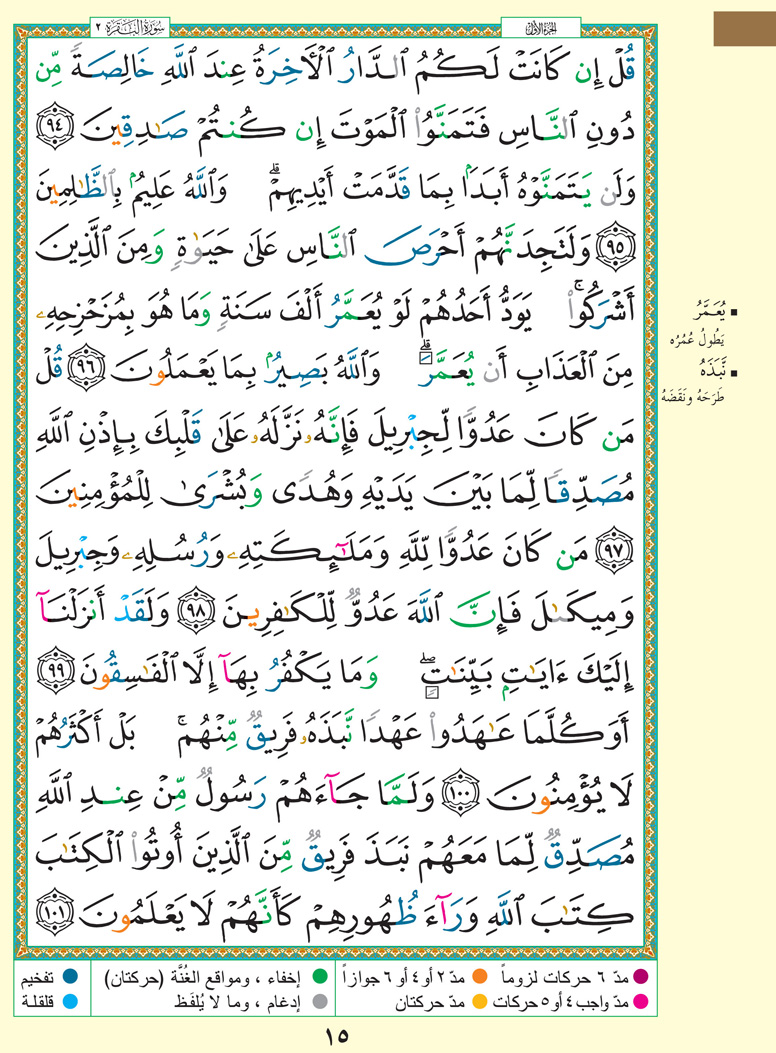 سُورَةُ البَقَرَةِ ٢
الجُزءُ الأوّلُ
قُلْ إِن كَانَتْ لَكُمُ ٱلدَّارُ ٱلْأَخِرَةُ عِندَ ٱللَّهِ خَالِصَةً مِّن
دُونِ ٱلنَّاسِ فَتَمَنَّوُا۟ ٱلْمَوْتَ إِن كُنتُمْ صَـٰدِقِينَ ٩٤
وَلَن يَتَمَنَّوْهُ أَبَدًۢا بِمَا قَدَّمَتْ أَيْدِيهِمْ ۗ وَٱللَّهُ عَلِيمٌۢ بِٱلظَّـٰلِمِينَ
٩٥ وَلَتَجِدَنَّهُمْ أَحْرَصَ ٱلنَّاسِ عَلَىٰ حَيَوٰةٍ وَمِنَ ٱلَّذِينَ
أَشْرَكُوا۟ ۚ يَوَدُّ أَحَدُهُمْ لَوْ يُعَمَّرُ أَلْفَ سَنَةٍ وَمَا هُوَ بِمُزَحْزِحِهِۦ
مِنَ ٱلْعَذَابِ أَن يُعَمَّرَ ۗ وَٱللَّهُ بَصِيرٌۢ بِمَا يَعْمَلُونَ ٩٦ قُلْ
مَن كَانَ عَدُوًّا لِّجِبْرِيلَ فَإِنَّهُۥ نَزَّلَهُۥ عَلَىٰ قَلْبِكَ بِإِذْنِ ٱللَّهِ
مُصَدِّقًا لِّمَا بَيْنَ يَدَيْهِ وَهُدًى وَبُشْرَىٰ لِلْمُؤْمِنِينَ
٩٧ مَن كَانَ عَدُوًّا لِّلَّهِ وَمَلَـٰٓئِكَتِهِۦ وَرُسُلِهِۦ وَجِبْرِيلَ
وَمِيكَىٰلَ فَإِنَّ ٱللَّهَ عَدُوٌّ لِّلْكَـٰفِرِينَ ٩٨ وَلَقَدْ أَنزَلْنَآ
إِلَيْكَ ءَايَـٰتٍۭ بَيِّنَـٰتٍ ۖ وَمَا يَكْفُرُ بِهَآ إِلَّا ٱلْفَـٰسِقُونَ ٩٩
أَوَكُلَّمَا عَـٰهَدُوا۟ عَهْدًا نَّبَذَهُۥ فَرِيقٌ مِّنْهُم ۚ بَلْ أَكْثَرُهُمْ
لَا يُؤْمِنُونَ ١٠٠ وَلَمَّا جَآءَهُمْ رَسُولٌ مِّنْ عِندِ ٱللَّهِ
مُصَدِّقٌ لِّمَا مَعَهُمْ نَبَذَ فَرِيقٌ مِّنَ ٱلَّذِينَ أُوتُوا۟ ٱلْكِتَـٰبَ
كِتَـٰبَ ٱللَّهِ وَرَآءَ ظُهُورِهِمْ كَأَنَّهُمْ لَا يَعْلَمُونَ ١٠١
▪ يُعَمَّرُ
يَطُولُ عُمُرُه
▪ نَّبَذَهُ
طَرَحَهُ ونَقَضَهُ
مدّ ٦ حركات لزوماً
مدّ ٢ أو ٤ أو ٦ جوازاً
إخفاء ، ومواقع الغُنَّة (حركتان)
تفخيم
مدّ واجب ٤ أو ٥ حركات
مدّ حركتان
إدغام ، وما لا يُلفَظ
قلقلة
١٥